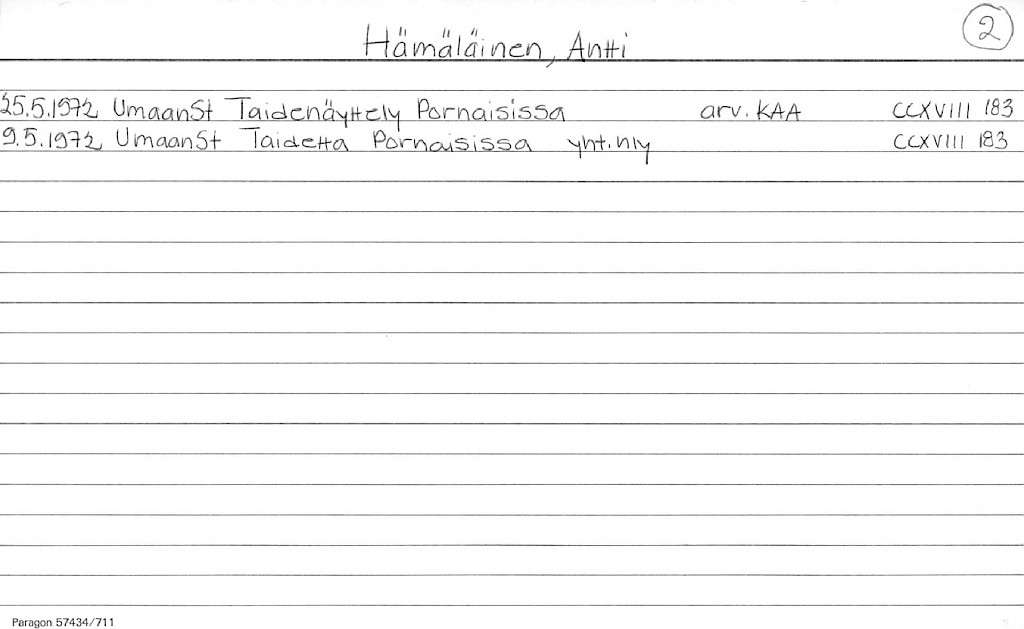 2
Hämäläinen, Antti
25.5.1972 UmaanSt Taidenäyttely Pornaisissa arv. KAA CCXVIII 183
9.5.1972 UmaanSt Taidetta Pornaisissa yht.nly CCXVIII 183
Paragon 57434/711